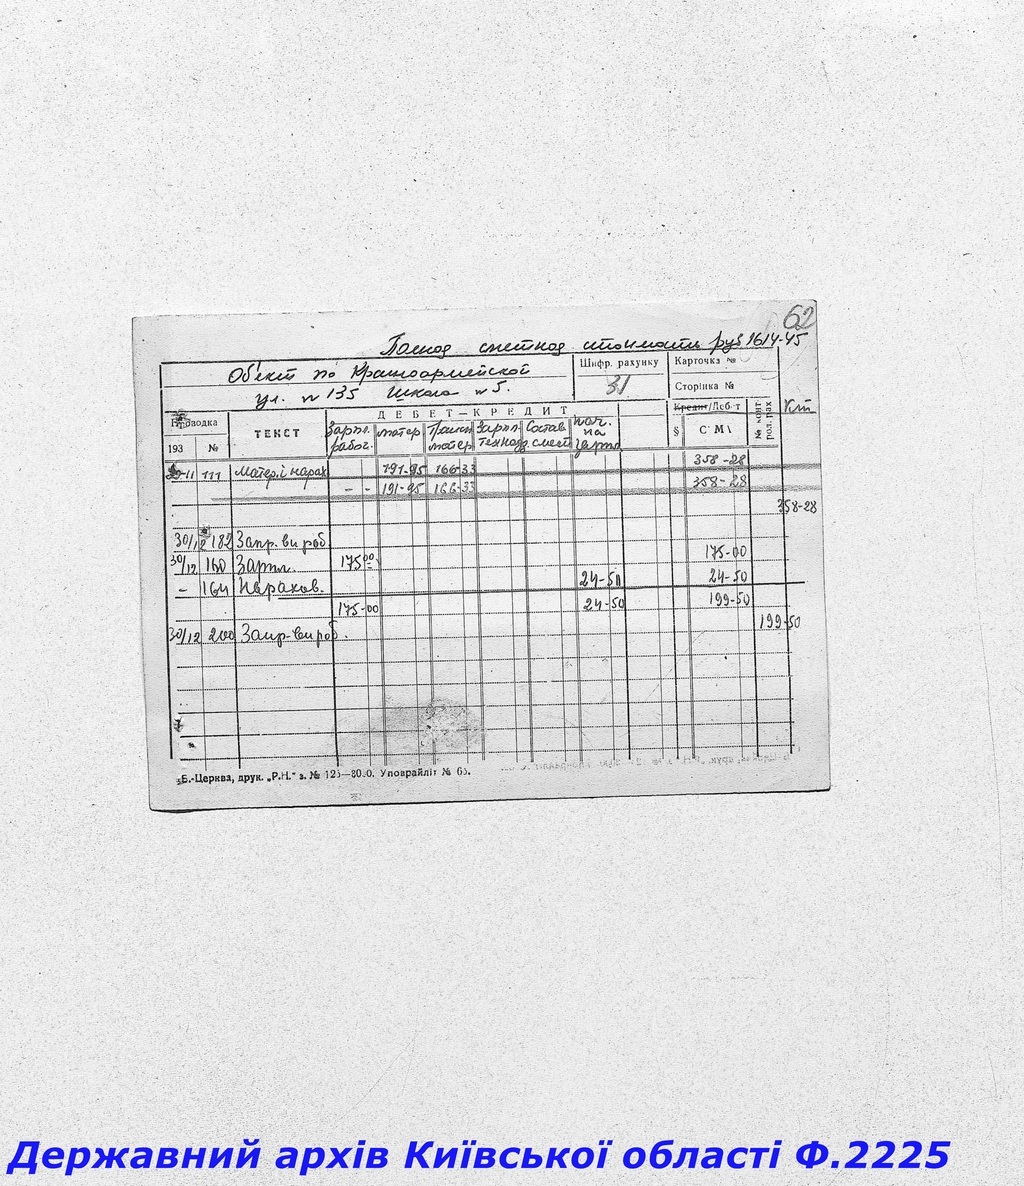 62
сметной стоимости руб 1614-45
Об'ект по Красноармейской
ул. № 135 Школа № 5.
Шифр. рахунку
31
Карточка №
Сторінка №
Проводка
193 №
ТЕКСТ
ДЕБЕТ—КРЕДИТ
Зарпл. рабоч.
матер.
Трансп. матер.
Зарпл. технадз.
Состав. смет
Нач. на зарпл.
Кредит/Дебет
§ СУМА
№ конт рол. рах
Кт
111 Матер. і нарах 191-95 166-33 358-28
- - 191-95 166-33 358-28
358-28
30/12 182 Запр. вироб
30/12 160 Зарпл. 175 00 175-00
- 164 Нарахов. 24-50 24-50
175-00 24-50 199-50
199-50
30/12 200 Запр-вироб.
Б.-Церква, друк. „Р.Н." з. № 125—8000. Уповрайліт № 65.
Державний архів Київської області Ф.2225